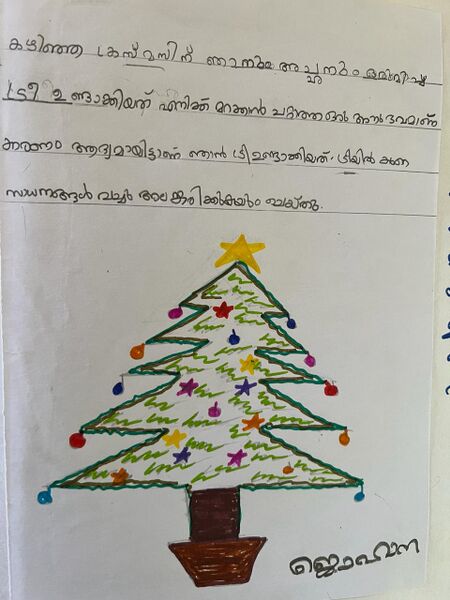 കഴിഞ്ഞ ക്രസ്മസിന് ഞാനും അച്ഛനും ഒരുമിച്ചു
ട്രീ ഉണ്ടാക്കിയത് എനിക്ക് മറക്കാൻ പറ്റാത്ത ഒരു അനുഭവമാണ്
കാരണം ആദ്യമായിട്ടാണ് ഞാൻ ട്രീ ഉണ്ടാക്കിയത്. ട്രീയിൽ കുറെ
സാധനങ്ങൾ വച്ചു അലങ്കരിക്കുകയും ചെയ്തു.